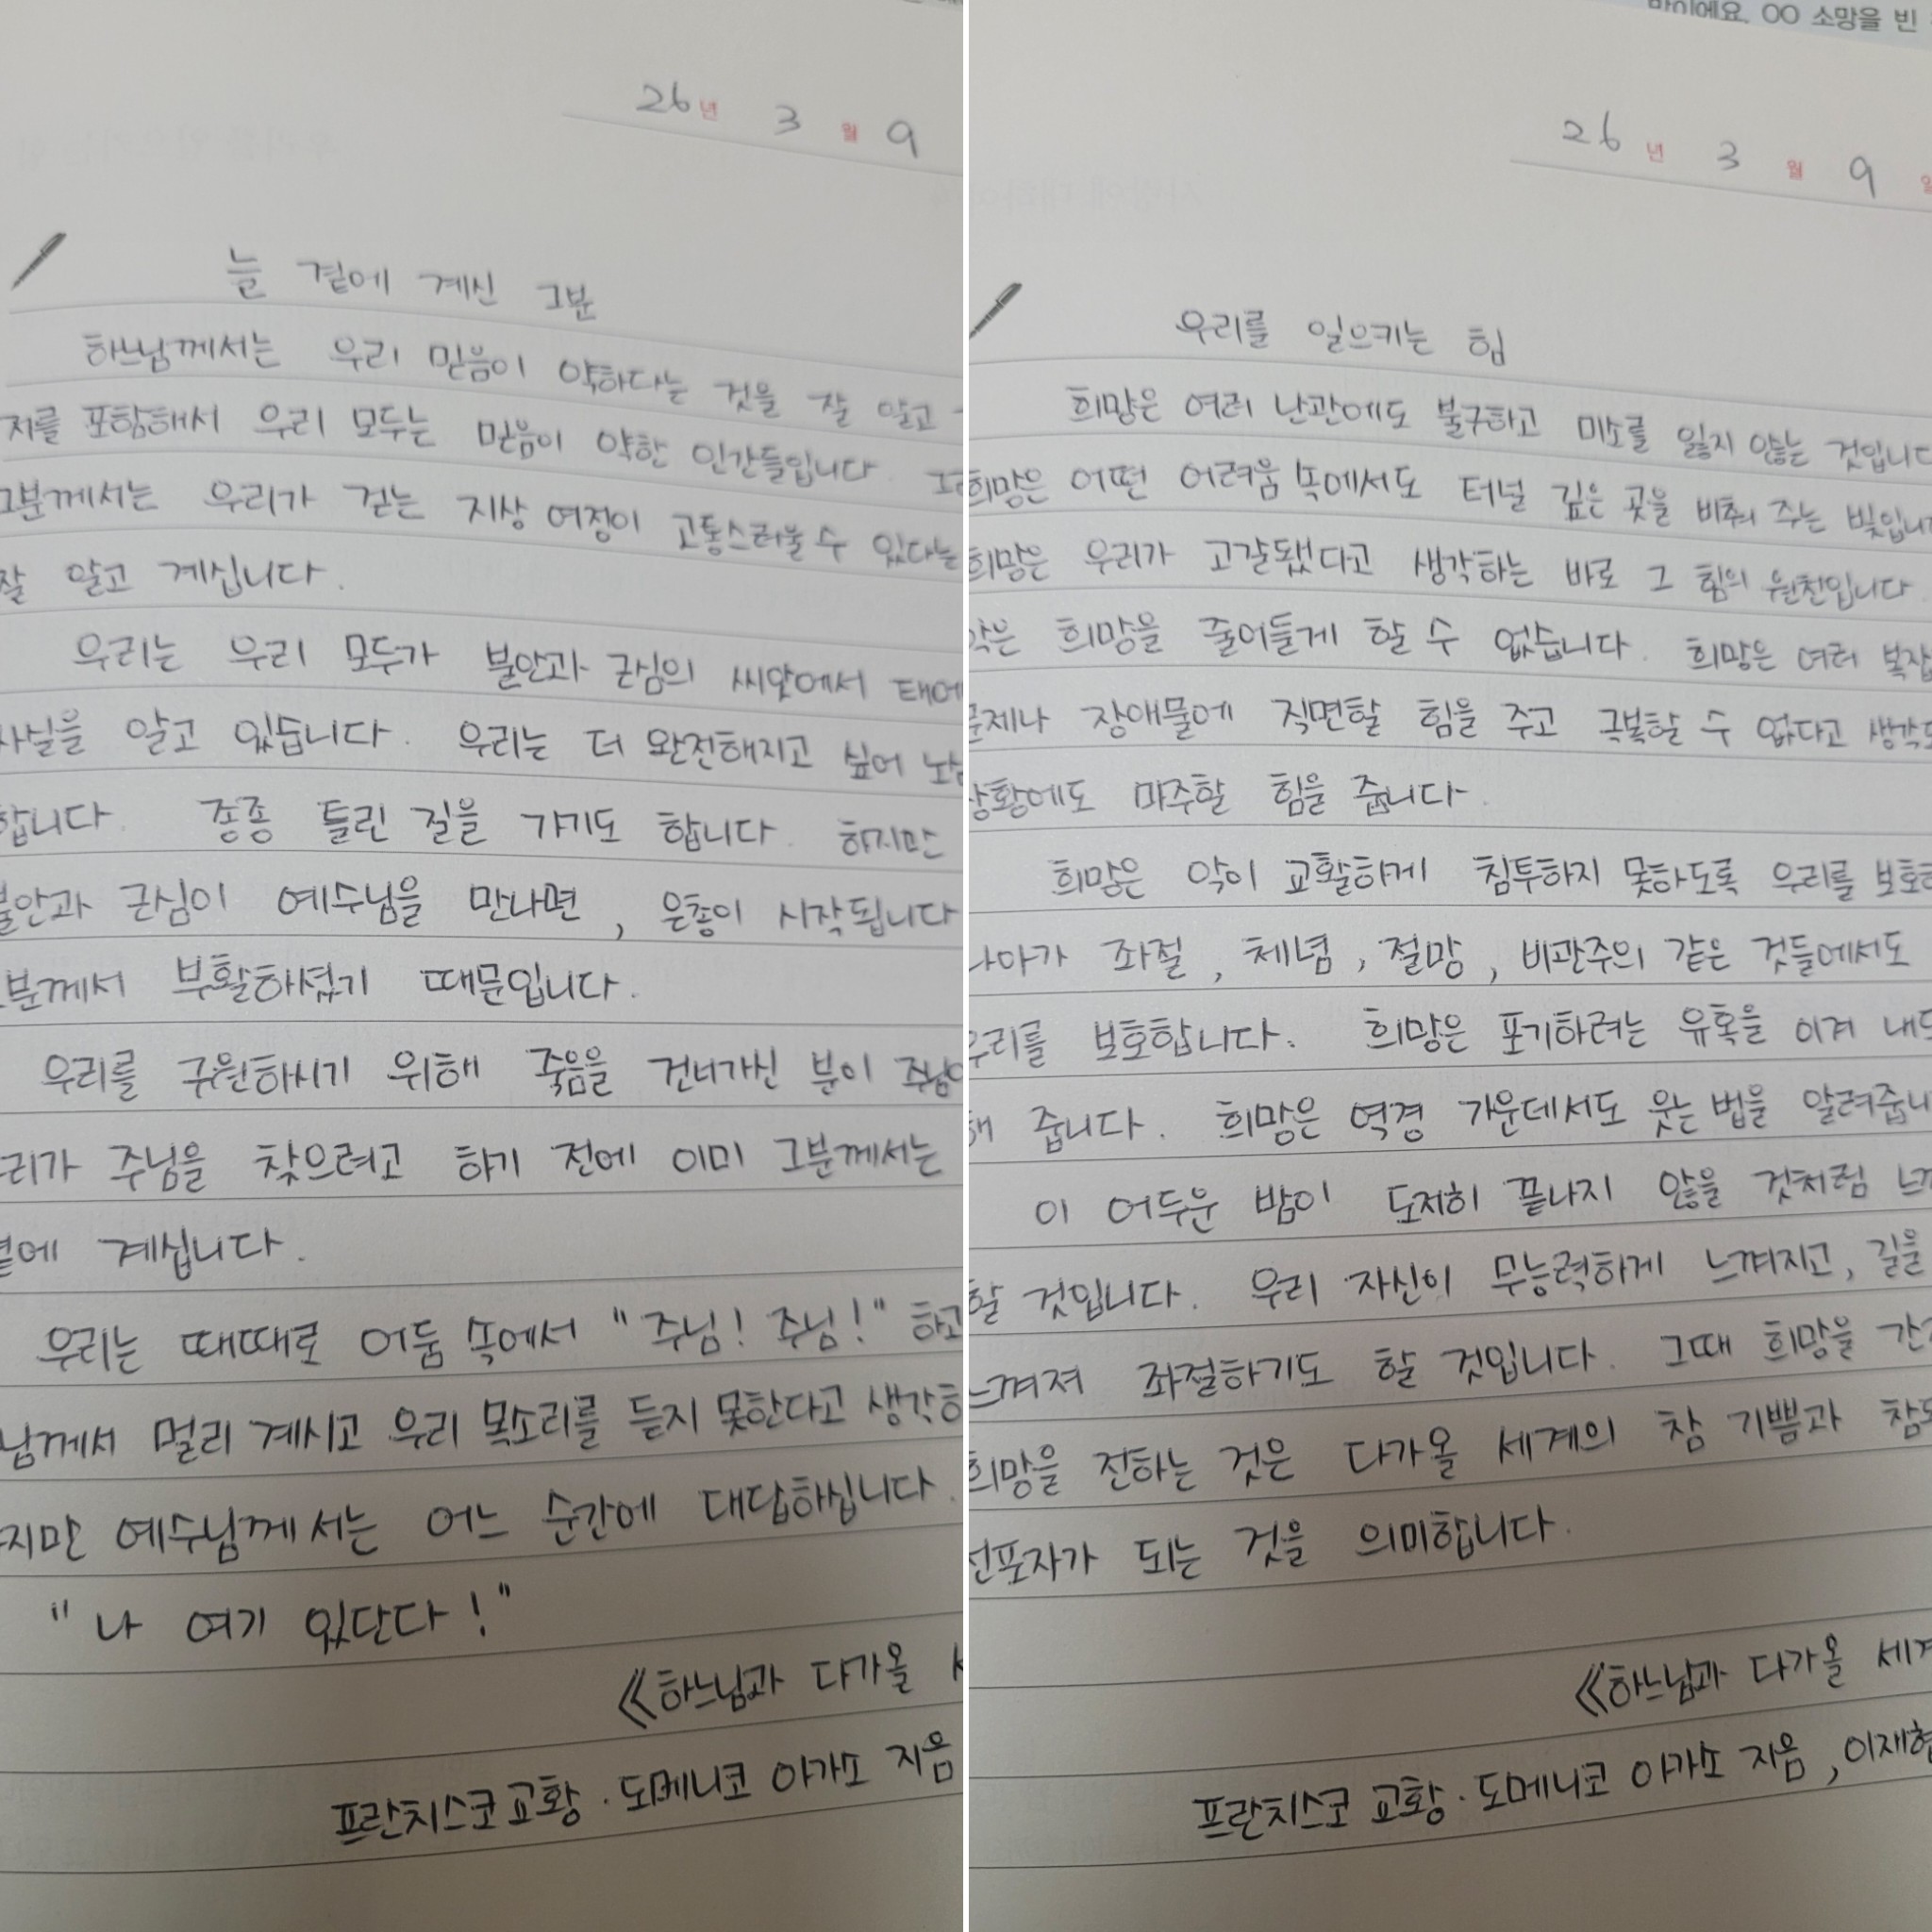 26년 3월 9
늘 곁에 계신 그분
하느님께서는 우리 믿음이 약하다는 것을 잘 알고
저를 포함해서 우리 모두는 믿음이 약한 인간들입니다.
그분께서는 우리가 걷는 지상 여정이 고통스러울 수 있다는
잘 알고 계십니다.
우리는 우리 모두가 불안과 근심의 씨앗에서 태어
사실을 알고 있습니다. 우리는 더 완전해지고 싶어 노심
합니다. 종종 틀린 길을 가기도 합니다. 하지만
불안과 근심이 예수님을 만나면, 은총이 시작됩니다
분께서 부활하셨기 때문입니다.
우리를 구원하시기 위해 죽음을 건너가신 분이 주님
리가 주님을 찾으려고 하기 전에 이미 그분께서는
곁에 계십니다.
우리는 때때로 어둠 속에서 "주님! 주님!" 하고
님께서 멀리 계시고 우리 목소리를 듣지 못한다고 생각하
지만 예수님께서는 어느 순간에 대답하십니다.
"나 여기 있단다!"
《하느님과 다가올
프란치스코 교황·도메니코 아가소 지음
맘이에요. OO 소망을 빈
26년 3월 9일
우리를 일으키는 힘
희망은 여러 난관에도 불구하고 미소를 잃지 않는 것입니다
희망은 어떤 어려움 속에서도 터널 깊은 곳을 비춰 주는 빛입니
희망은 우리가 고갈됐다고 생각하는 바로 그 힘의 원천입니다.
악은 희망을 줄어들게 할 수 없습니다. 희망은 여러 복잡
문제나 장애물에 직면할 힘을 주고 극복할 수 없다고 생각
상황에도 마주할 힘을 줍니다.
희망은 악이 교활하게 침투하지 못하도록 우리를 보호
나아가 좌절, 체념, 절망, 비관주의 같은 것들에서도
우리를 보호합니다. 희망은 포기하려는 유혹을 이겨 내
해 줍니다. 희망은 역경 가운데서도 웃는 법을 알려줍니
이 어두운 밤이 도저히 끝나지 않을 것처럼 느껴
할 것입니다. 우리 자신이 무능력하게 느껴지고, 길을
느껴져 좌절하기도 할 것입니다. 그때 희망을 간
희망을 전하는 것은 다가올 세계의 참 기쁨과 참
선포자가 되는 것을 의미합니다.
《하느님과 다가올 세계
프란치스코 교황·도메니코 아가소 지음, 이재협